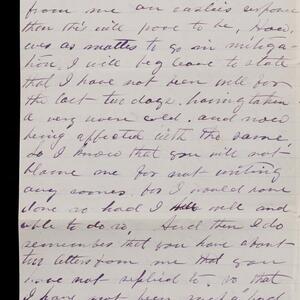 from me an earlier response
than this will prove to be. How
ever as matter to go in mitiga
tion, I will beg leave to state
that I have not been well for
the last two days, having taken
a very severe cold. and now
being affected with the same,
so I know that you will not
blame me for not writing
any sooner, for I would have
done so had I felt well and
able to do so, And then I do
remember that you have about
two letters from me that you
have not replied to. so that
I have not been